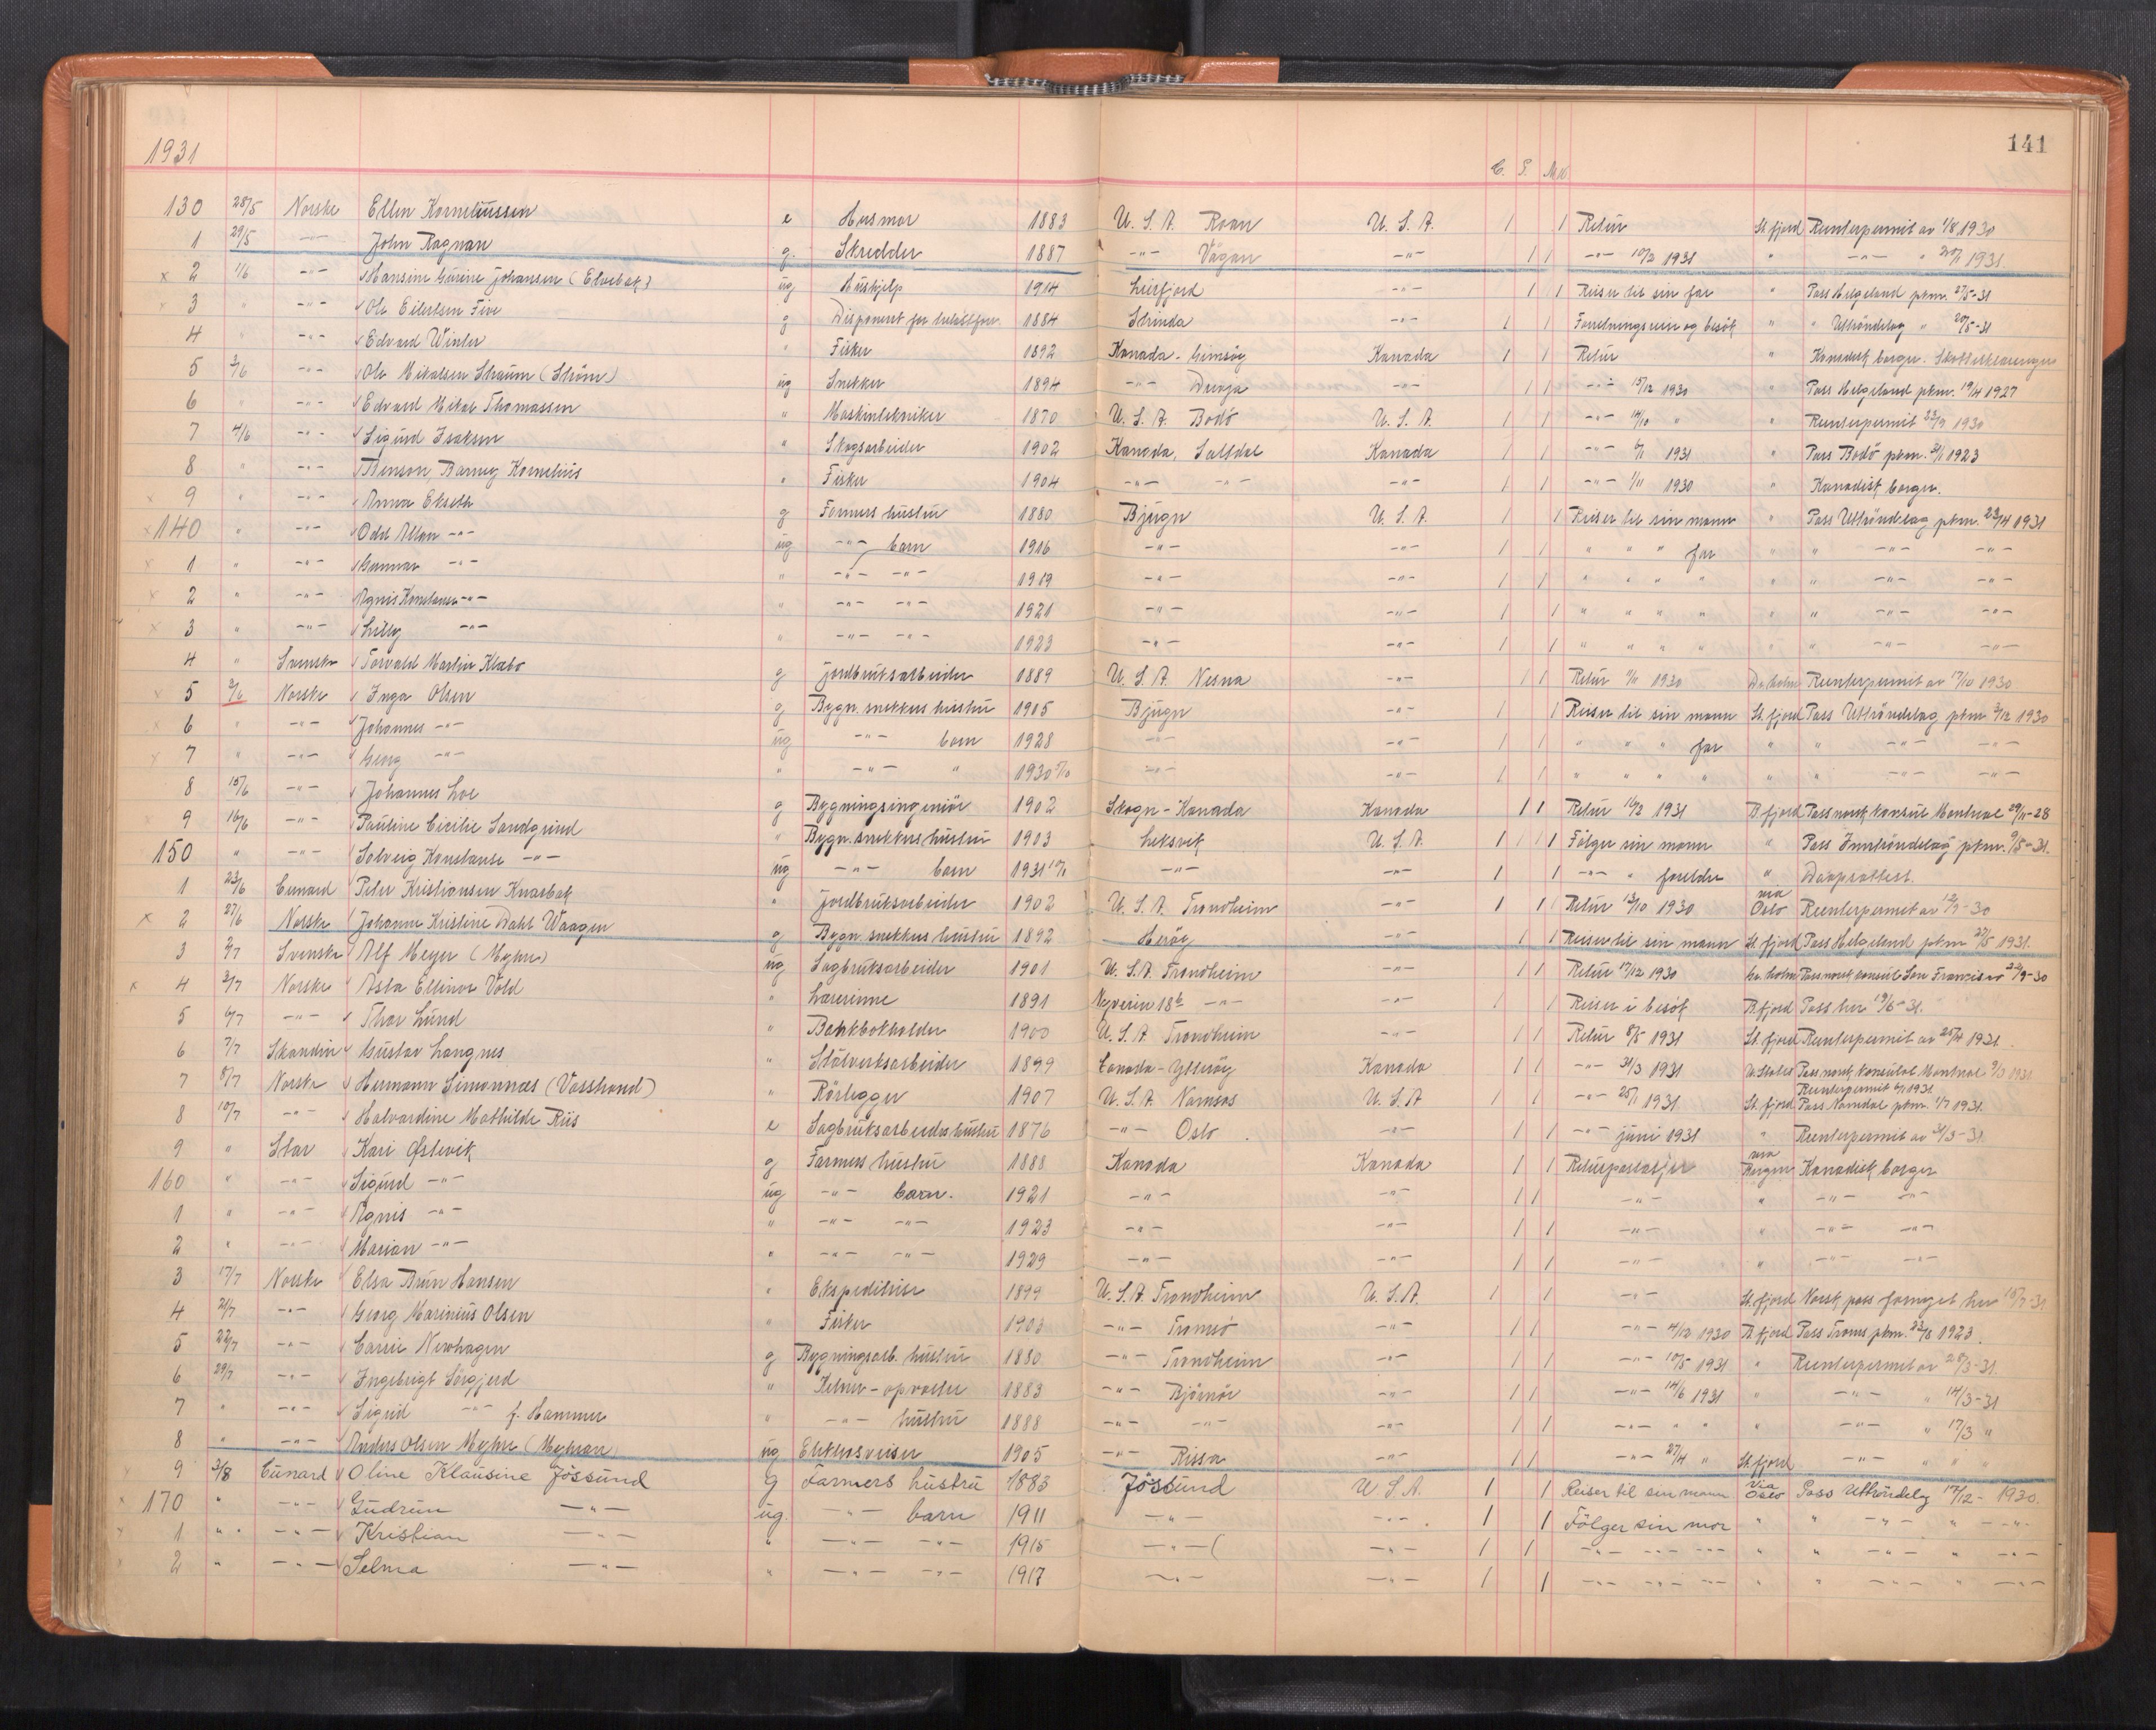 1931
141
C. S. M. K.
130 28/5 Norske Ellen Korneliussen e Husmor 1883 U. S. A. Roan U. S. A. 1 1 Retur St. fjord Reenterpermit av 1/8 1930
1 29/5 -"- John Ragnar g. Skredder 1887 -"- Vågan -"- 1 1 -"- 10/2 1931 " -"- " 20/1 1931.
x 2 1/6 -"- Hansine Gurine Johansen (Elvebak) ug Hushjelp 1914 Leirfjord -"- 1 1 Reiser til sin far " Pass Helgeland pkm. 27/5-31
x 3 " -"- Ole Eilertsen Five g 1884 Strinda -"- 1 1 Forretningsreise og besök " " Uttröndelag " 20/5-31
4 " -"- Edvard Winter " Fisker 1892 Kanada - Gimsöy Kanada 1 1 Retur " Kanadisk borger.
5 3/6 -"- Ole Mikalsen Straum (Ström) ug Snekker 1894 -"- Drevja -"- 1 1 -"- 15/12 1930 " Pass Helgeland pkm. 19/4 1927
6 " -"- Edvard Mikal Thomassen " Maskintekniker 1870 U. S. A. Bodö U. S. A. 1 1 -"- 14/10 " " Reenterpermit 23/9 1930
7 4/6 -"- Sigurd Isaksen " Skogsarbeider 1902 Kanada, Saltdal Kanada 1 1 -"- 6/1 1931 " Pass Bodö pkm. 1923
8 " -"- Benson Barney Kornelius " Fisker 1904 -"- -"- -"- 1 1 -"- 1/11 1930 " Kanadisk borger.
x 9 " -"- Anna Ekseth g Farmers hustru 1880 Bjugn U. S. A. 1 1 Reiser til sin mann " Pass Uttröndelag pkm. 23/4 1931
x 140 " -"- Odd Allan -"- ug -"- barn 1916 -"- -"- 1 1 " " " far " " -"- -"-
x 1 " -"- Gunnar -"- " -"- -"- 1919 -"- -"- 1 1 " " " " " " -"- -"-
x 2 " -"- Agnes Konstanse -"- " -"- -"- 1921 -"- -"- 1 1 " " " " " " -"- -"-
x 3 " -"- Lilly -"- " -"- -"- 1923 -"- -"- 1 1 " " " " " " -"- -"-
4 " Svenske Torvald Martin Klæbo g Jordbruksarbeider 1889 U. S. A. Nesna -"- 1 1 Retur 1930 Reenterpermit av 17/10 1930
x 5 Norske Inga Olsen g Bygn. snekkers hustru 1905 Bjugn -"- 1 1 Reiser til sin mann St. fjord Pass Uttröndelag pkm. 3/12 1930
x 6 " -"- Johannes -"- ug -"- barn 1928 -"- -"- 1 1 " " " far " " -"- -"-
x 7 " -"- Georg -"- " -"- " 1930 -"- -"- 1 1 " " " " " " -"- -"-
8 15/6 -"- Johannes Loe g Bygningsingeniör 1902 Skogn - Kanada Kanada 1 1 Retur 16/2 1931 B. fjord Pass norsk konsul Montreal 29/11-28
x 9 16/6 -"- Pauline Cicilie Sandgrind " Bygn. snekkers hustru 1903 Leksvik U. S. A. 1 1 Fölger sin mann " Pass Inntröndelag pkm. 9/5-31.
150 " -"- Solveig Konstanse -"- ug -"- barn 1931 -"- -"- 1 1 -"- " foreldre " Dåpsattest.
1 23/6 Cunard Peter Kristiansen Kvarbak " Jordbruksarbeider 1902 U. S. A. Trondheim -"- 1 1 Retur 13/10 1930 via Oslo Reenterpermit av 12/9-30
x 2 27/6 Norske Johanne Kristine Dahl Waagen g Bygn. snekkers hustru 1892 Heröy -"- 1 1 Reiser til sin mann St. fjord Pass Helgeland pkm. 27/5 1931.
3 2/7 Svenske Alf Meyer (Myhre) ug Sagbruksarbeider 1901 U. S. A. Trondheim -"- 1 1 Retur 17/12 1930 Pass norsk konsul San Francisco 22/9-30
x 4 3/7 Norske Asta Ellinor Vold " Lærerinne 1891 -"- -"- 1 1 Reiser i besök B. fjord Pass her 19/6-31.
5 6/7 -"- Thor Lund " Bankbokholder 1900 U. S. A. Trondheim -"- 1 1 Retur 8/5 1931 St. fjord Reenterpermit av 25/4 1931.
6 7/7 Skandin. Gustav Langnes " Stålverksarbeider 1899 Kanada - Ytteröy Kanada 1 1 -"- 31/3 1931 U. States Pass norsk konsulat Montreal 9/3 1931
7 8/7 Norske Hermann Simonnæs (Vasstrand) " Rörlegger 1907 U. S. A. Namsos U. S. A 1 1 -"- 25/1 1931 St. fjord Reenterpermit 1931. Pass Namdal pkm. 1/7 1931.
8 10/7 -"- Halvardine Mathilde Riis e Sagbruksarbeiders hustru 1876 -"- Oslo -"- 1 1 -"- juni 1931 " Reenterpermit av 31/3-31
9 " Star Kari Østevik g Farmers hustru 1888 Kanada Kanada 1 1 Returpassasjer via Bergen Kanadisk borger
160 " -"- Sigurd -"- ug -"- barn. 1921 -"- -"- 1 1 -"- " -"- -"-
1 " -"- Agnes -"- " -"- -"- 1923 -"- -"- 1 1 -"- " -"- -"-
2 " -"- Marion -"- " -"- -"- 1929 -"- -"- 1 1 -"- " -"- -"-
3 17/7 Norske Elsa Brun Hansen " Ekspeditrise 1899 U. S. A. Trondheim U. S. A. 1 1 -"- St. fjord Norsk pass fornyet her 15/7-31
4 21/7 -"- Georg Marinius Olsen " Fisker 1903 -"- Tromsö -"- 1 1 -"- 4/12 1930 B. fjord Pass Troms pkm. 23/8 1923.
5 22/7 -"- Carrie Newhagen g Bygningsarb. hustru 1880 -"- Trondheim -"- 1 1 -"- 10/5 1931 " Reenterpermit av 28/3-31.
6 29/7 -"- Ingebrigt Sörgjerd " Kelner - opvarter 1883 -"- Björnör -"- 1 1 -"- 14/6 1931 " -"- " 14/3-31
7 " -"- Sigrid -"- f. Hammer " -"- hustru 1888 -"- -"- -"- 1 1 -"- " " " -"- " 17/3 "
8 " -"- Anders Olsen Myhre (Myhran) ug Elektrosveiser 1905 -"- Rissa -"- 1 1 -"- 27/4 " St. fjord -"- " " "
x 9 3/8 Cunard Oline Klausine Jössund g Farmers hustru 1883 Jössund U S A. 1 1 Reiser til sin mann Via Oslo Pass Uttröndelag 17/12 - 1930.
x 170 " -"- Gudrun -"- ug. -"- barn 1911 -"- -"- 1 1 Fölger sin mor " " -"- " -"-
x 1 " -"- Kristian -"- " -"- -"- 1915 -"- -"- 1 1 -"- -"- -"- " " -"- " -"-
x 2 " -"- Selma -"- " -"- -"- 1917 -"- -"- 1 1 -"- -"- -"- " " -"- " -"-